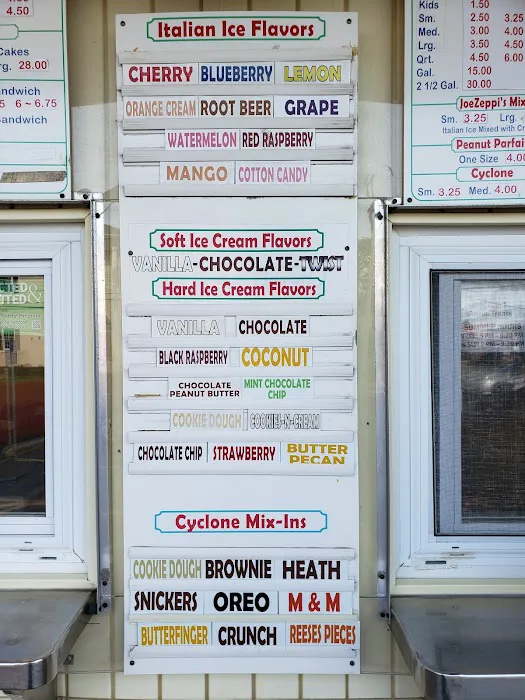 4.50
Cakes
rg. 28.00
andwich
5 6 ~ 6.75
Sandwich
Italian Ice Flavors
CHERRY BLUEBERRY LEMON
ORANGE CREAM ROOT BEER GRAPE
WATERMELON RED RASPBERRY
MANGO COTTON CANDY
Soft Ice Cream Flavors
VANILLA-CHOCOLATE-TWIST
Hard Ice Cream Flavors
VANILLA CHOCOLATE
BLACK RASPBERRY COCONUT
CHOCOLATE PEANUT BUTTER MINT CHOCOLATE CHIP
COOKIE DOUGH COOKIES-N-CREAM
CHOCOLATE CHIP STRAWBERRY BUTTER PECAN
Cyclone Mix-Ins
COOKIE DOUGH BROWNIE HEATH
SNICKERS OREO M & M
BUTTERFINGER CRUNCH REESES PIECES
Kids 1.50
Sm. 2.50 3.25
Med. 3.00 4.00
Lrg. 3.50 4.50
Qrt. 4.50 6.00
Gal. 15.00
2 1/2 Gal. 30.00
JoeZeppi's Mix
Sm. 3.25 Lrg.
Italian Ice Mixed with Cr
Peanut Parfai
One Size 4.00
Cyclone
Sm. 3.25 Med. 4.00